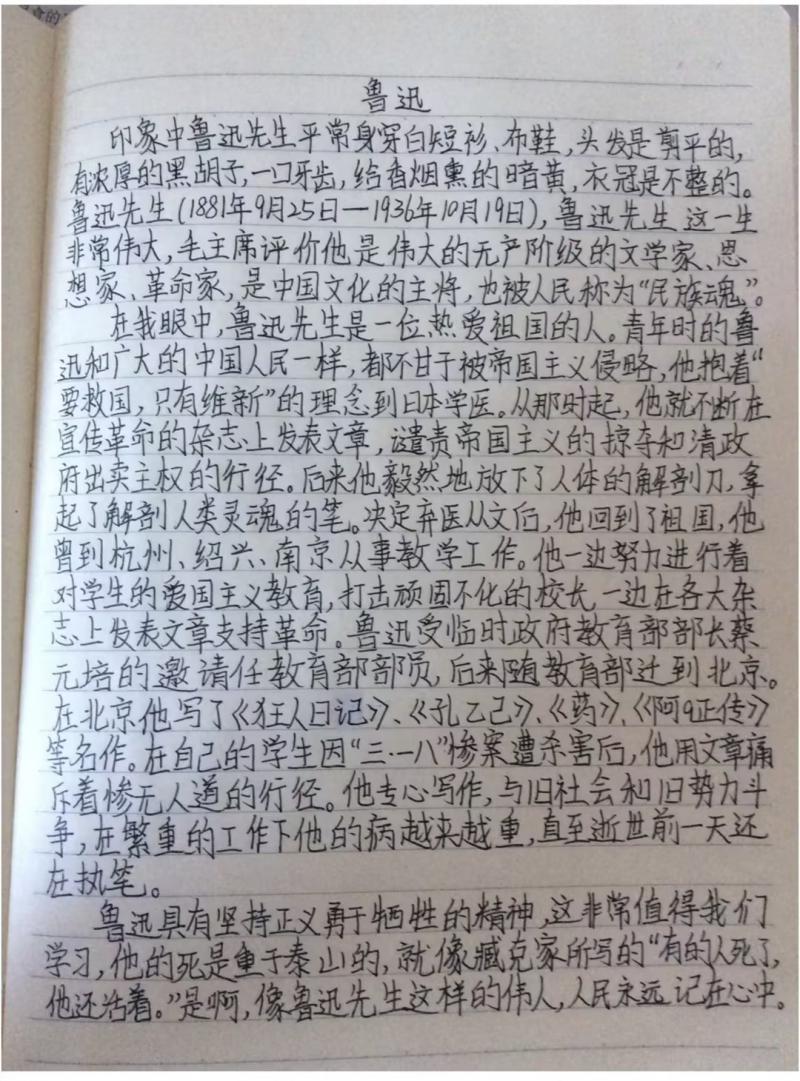 鲁迅
印象中鲁迅先生平常身穿白短衫、布鞋,头发是剪平的,
有浓厚的黑胡子,一口牙齿,给香烟熏的暗黄,衣冠是不整的。
鲁迅先生(1881年9月25日—1936年10月19日),鲁迅先生这一生
非常伟大,毛主席评价他是伟大的无产阶级的文学家、思
想家、革命家,是中国文化的主将,也被人民称为“民族魂”。
在我眼中,鲁迅先生是一位热爱祖国的人。青年时的鲁
迅和广大的中国人民一样,都不甘于被帝国主义侵略,他抱着“
要救国,只有维新”的理念到日本学医。从那时起,他就不断在
宣传革命的杂志上发表文章,谴责帝国主义的掠夺和清政
府出卖主权的行径。后来他毅然地放下了人体的解剖刀,拿
起了解剖人类灵魂的笔。决定弃医从文后,他回到了祖国,他
曾到杭州、绍兴、南京从事教学工作。他一边努力进行着
对学生的爱国主义教育,打击顽固不化的校长一边在各大杂
志上发表文章支持革命。鲁迅受临时政府教育部部长蔡
元培的邀请任教育部部员,后来随教育部迁到北京。
在北京他写了《狂人日记》、《孔乙己》、《药》、《阿q正传》
等名作。在自己的学生因“三·一八”惨案遭杀害后,他用文章痛
斥着惨无人道的行径。他专心写作,与旧社会和旧势力斗
争,在繁重的工作下他的病越来越重,直至逝世前一天还
在执笔。
鲁迅具有坚持正义勇于牺牲的精神,这非常值得我们
学习,他的死是重于泰山的,就像臧克家所写的“有的人死了,
他还活着。”是啊,像鲁迅先生这样的伟人,人民永远记在心中。